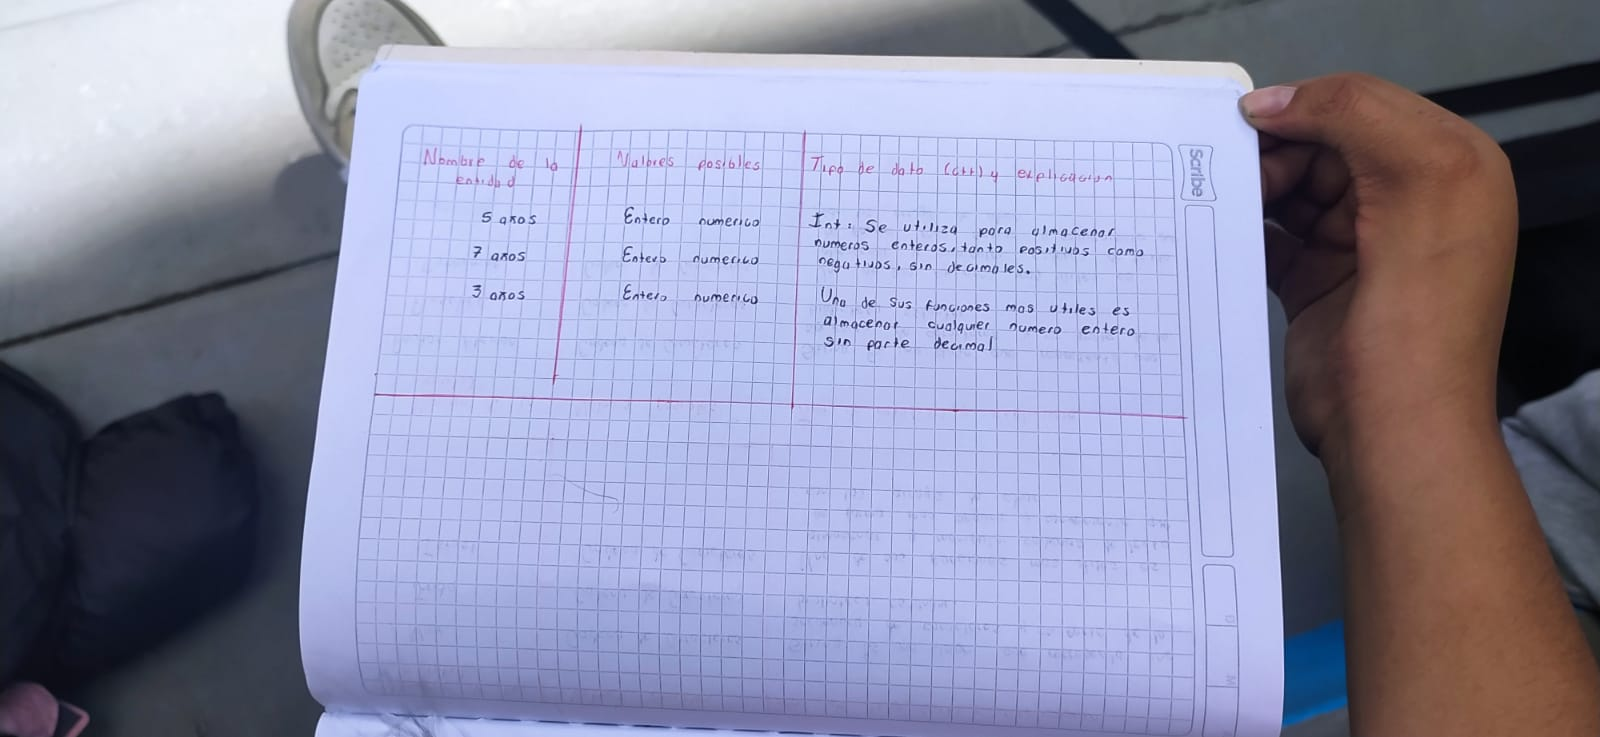 Nombre de la
entidad
Valores posibles
Tipo de dato (c++) y explicacion
5 años
Entero numerico
Int: Se utiliza para almacenar
numeros enteros, tanto positivos como
negativos, sin decimales.
7 años
Entero numerico
3 años
Entero numerico
Una de sus funciones mas utiles es
almacenar cualquier numero entero
sin parte decimal
Scribe
D
M